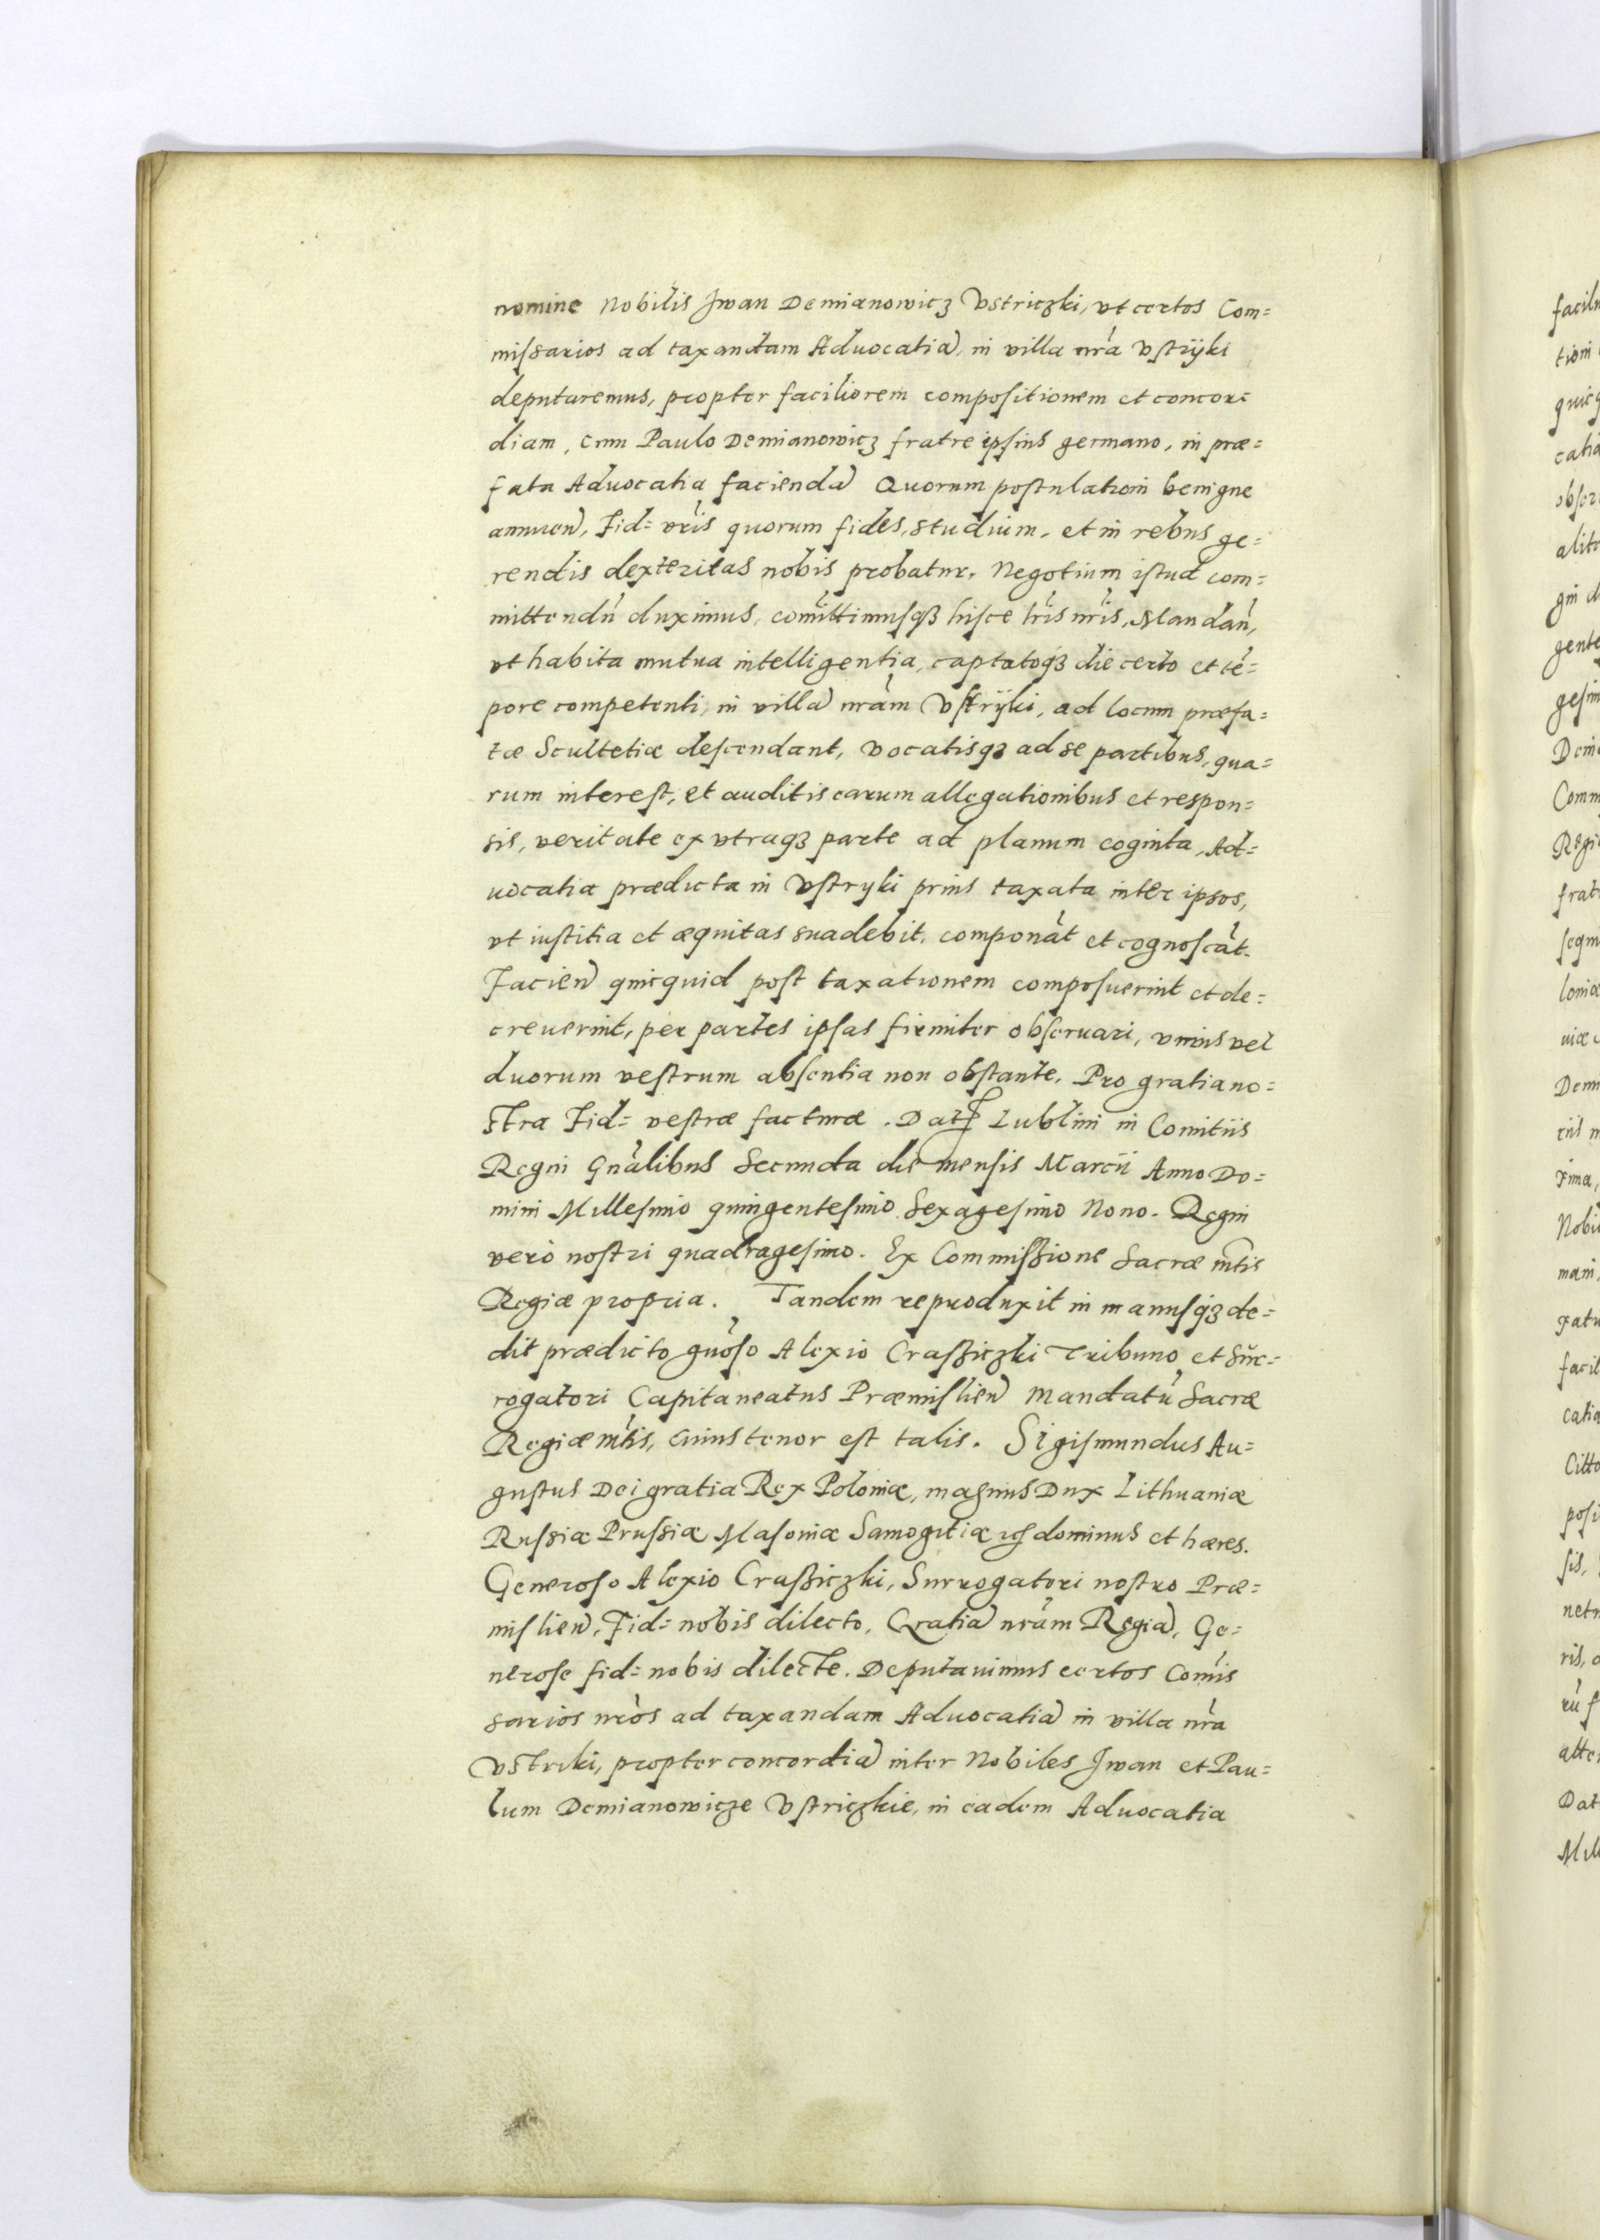 nomine Nobilis Jwan Demianowicz Vstriczki, vt certos Com=
missarios ad taxandam Aduocatiã, in villa nr̃a Vstrijki
deputaremus, propter faciliorem compositionem et concor=
diam, cum Paulo Demianowicz fratre ipsius germano, in præ=
fata Aduocatia faciendã Quorum postulationi benigne
annuen̄, Fid= vr̃is quorum fides, studium, et in rebus ge=
rendis dexteritas nobis probatur. Negotium istud com=
mittendũ duximus, com̃ittimusqꝫ hisce lr̃is nr̃is, Mandan̄,
vt habita mutua intelligentia, captatoqꝫ die certo et tẽ=
pore competenti, in villã nrãm Vstrijki, ad locum præfa=
tæ Scultetiæ descendant, vocatisqꝫ ad se partibus, qua=
rum interest, et auditis earum allegationibus et respon=
sis, veritate ex vtraqꝫ parte ad planum cognita, Ad=
uocatia prædicta in Vstryki prius taxata inter ipsos,
vt iustitia et æquitas suadebit, componãt et cognoscãt.
Facien̄ quicquid post taxationem composuerint et de=
creuerint, per partes ipsas firmiter obseruari, vnius vel
duorum vestrum absentia non obstante. Pro gratia no=
stra Fid= vestræ facturæ. Dat̃ Lublini in Comitiis
Regni Gnãlibus Secunda die mensis Marcii Anno Do=
mini Millesimo quingentesimo Sexagesimo Nono. Regni
verò nostri quadragesimo. Ex Commißione Sacræ m̃tis
Regiæ propria. Tandem reproduxit in manusqꝫ de=
dit prædicto gnõso Alexio Craßiczki Tribuno et Sur=
rogatori Capitaneatus Præmislien̄ Mandatũ Sacræ
Regiæ m̃tis, cuius tenor est talis. Sigismundus Au=
gustus Dei gratia Rex Poloniæ, magnus Dux Lithuaniæ
Russiæ Prussiæ Masoniæ Samogitiæ ꝛc̃ dominus et hæres.
Generoso Alexio Craßiczki, Surrogatori nostro Præ=
mislien̄, Fid= nobis dilecto, Gratiã nrãm Regiã, Ge=
nerose fid= nobis dilecte. Deputauimus certos Com̃is
sarios nrõs ad taxandam Aduocatiã in villa nr̃a
Vstriki, propter concordiã inter Nobiles Jwan et Pau=
lum Demianowicze Vstriczkie, in eadem Aduocatia